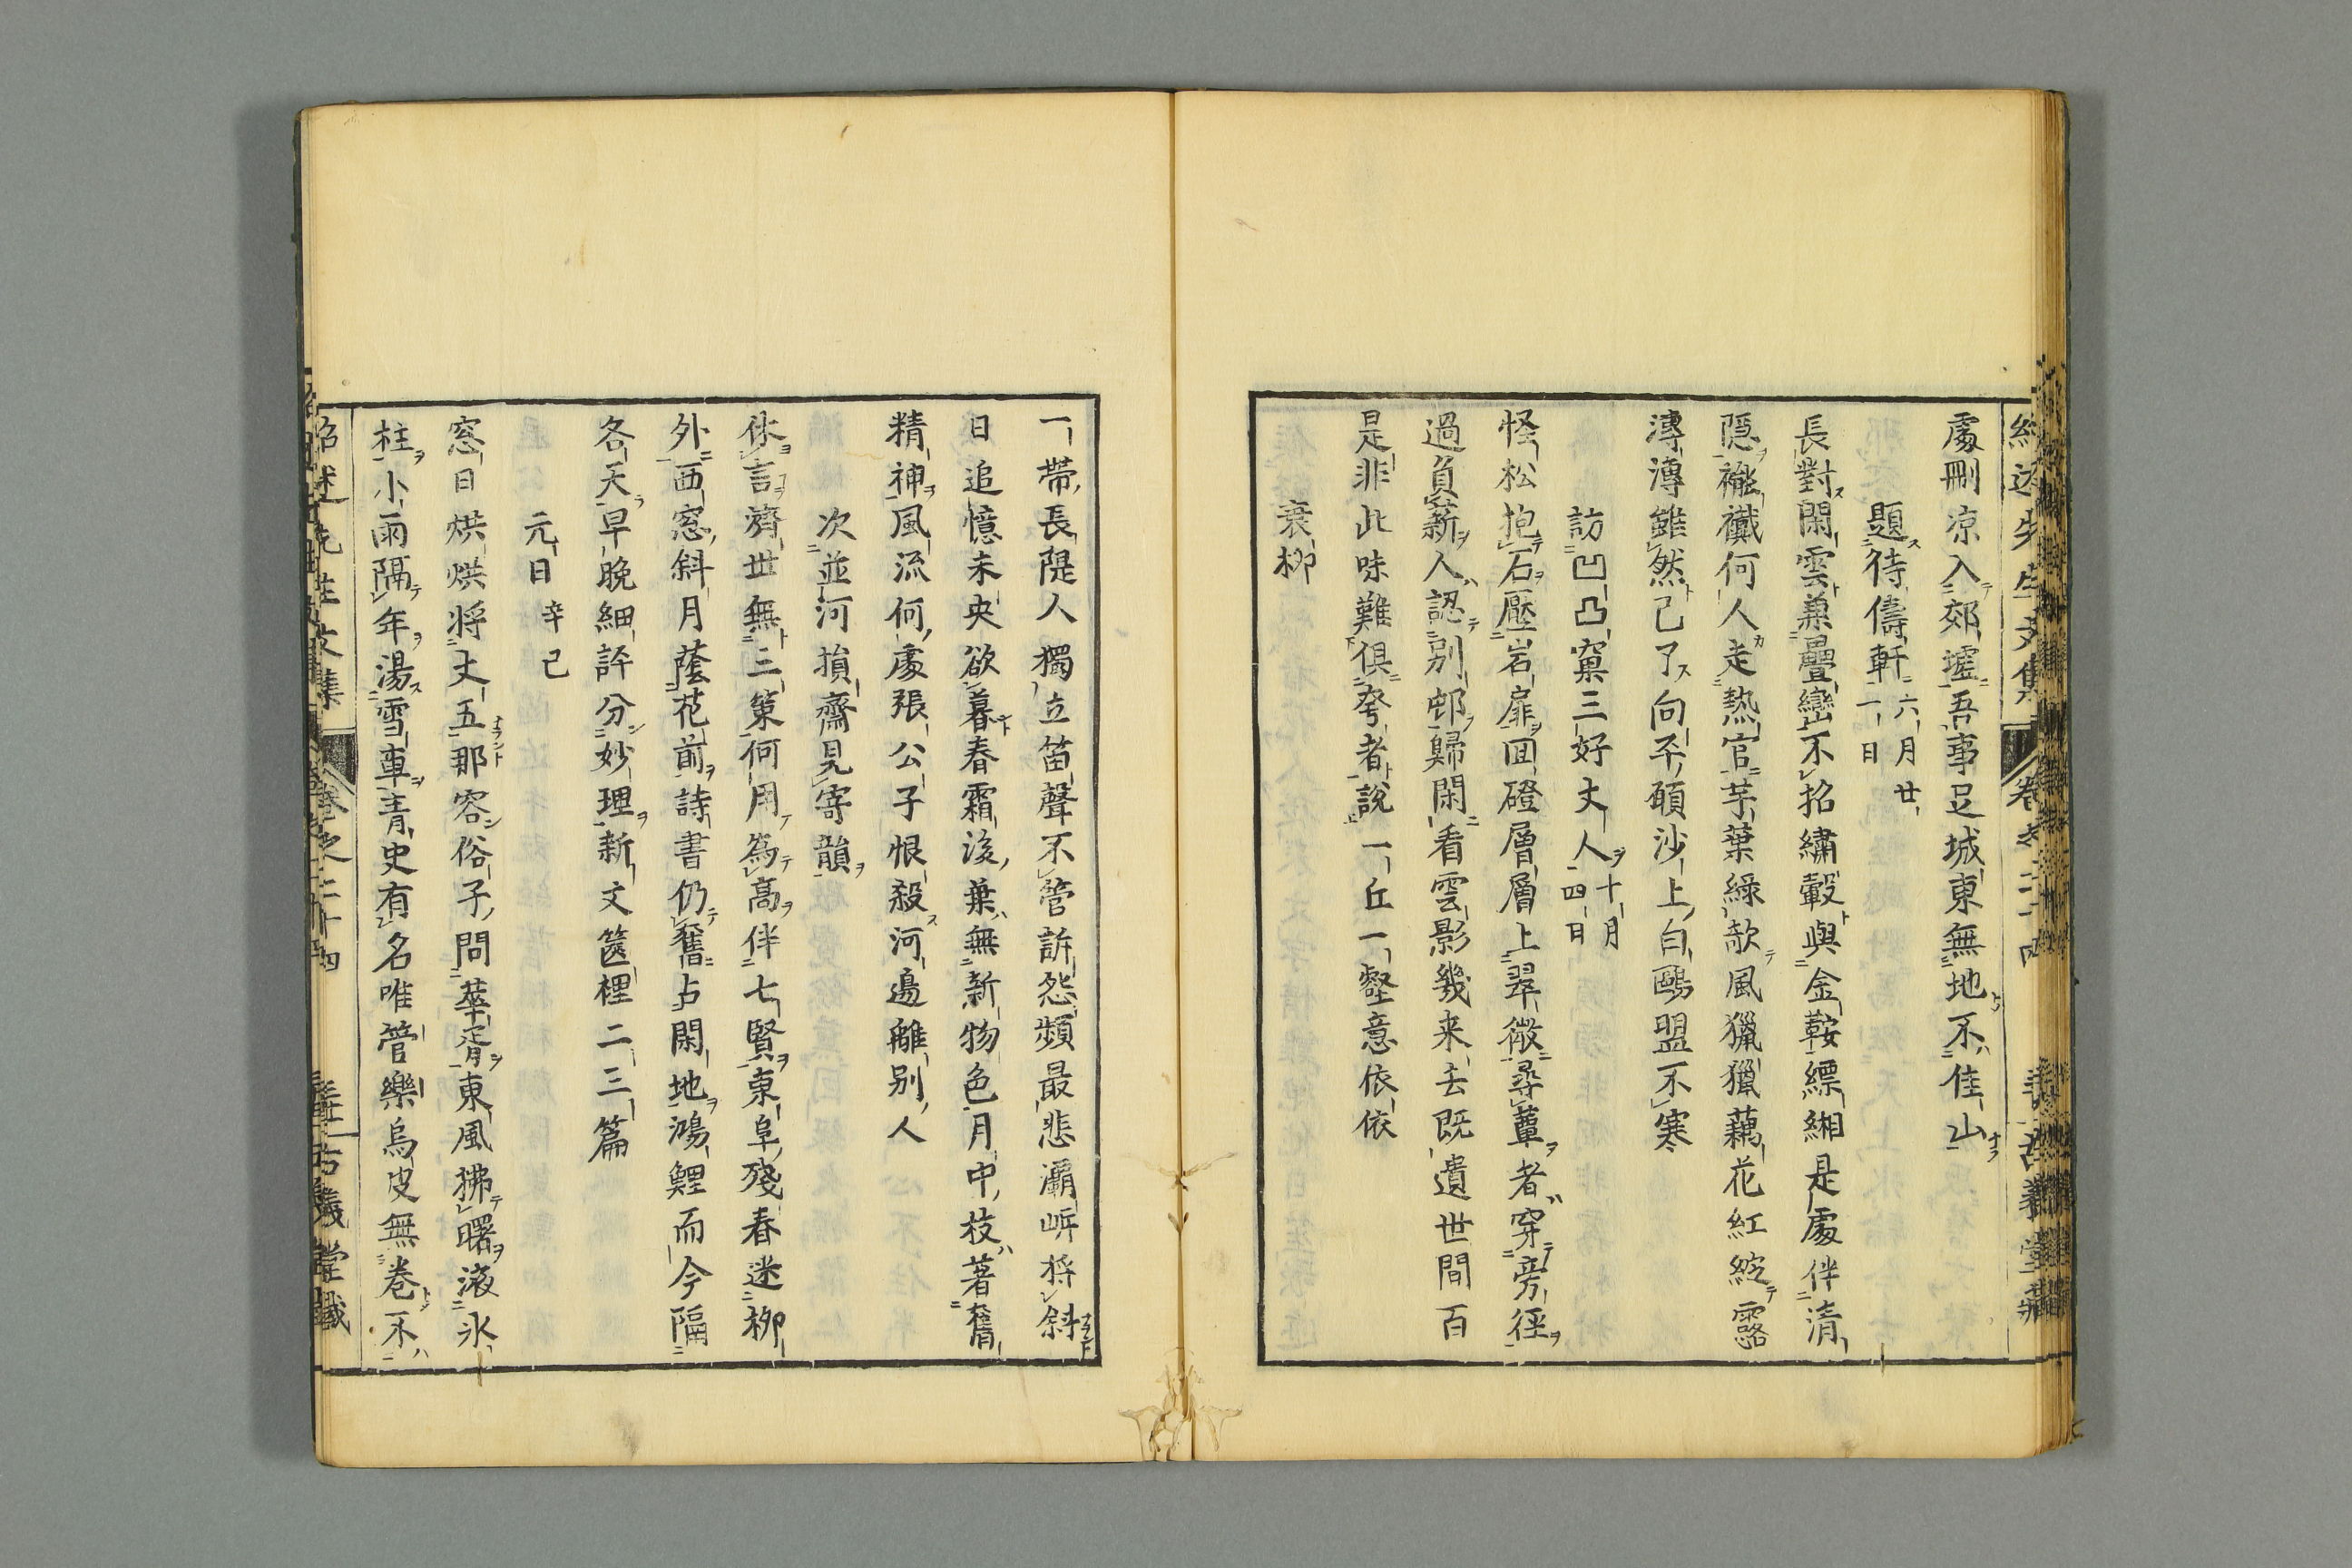 處刪凉入郊墟吾事足城東無地不佳山
題待儔軒 六月廿一日
長對閑雲兼疊巒不招繡轂與金鞍縹緗是處伴清
隱襶襶何人走熱官芋葉綠欹風獵獵藕花紅綻露
漙漙雖然已了向平願沙上白鷗盟不寒
訪凹凸窠三好丈人 十月四日
怪松抱石壓岩扉回磴層層上翠微尋蕈者穿旁徑
過負薪人認別邨歸閑看雲影幾来去既遺世間百
是非此味難俱夸者說一丘一壑意依依
衰柳
一帶長隄人獨立笛聲不管訴怨頻最悲灞岍将斜
日追憶未央欲暮春霜後葉無新物色月中枝著舊
精神風流何處張公子恨殺河邊離別人
次並河損齋見寄韻
休言濟世無三策何用為高伴七賢東阜殘春迷柳
外西窓斜月蔭花前詩書仍舊占閑地鴻鯉而今隔
各天早晚細評分妙理新文篋裡二三篇
元日 辛巳
窓日烘烘将丈五那容俗子問華胥東風拂曙液氷
柱小雨隔年湯雪車青史有名唯管樂烏皮無卷不
紹述先生文集 卷之二十四 古義堂藏